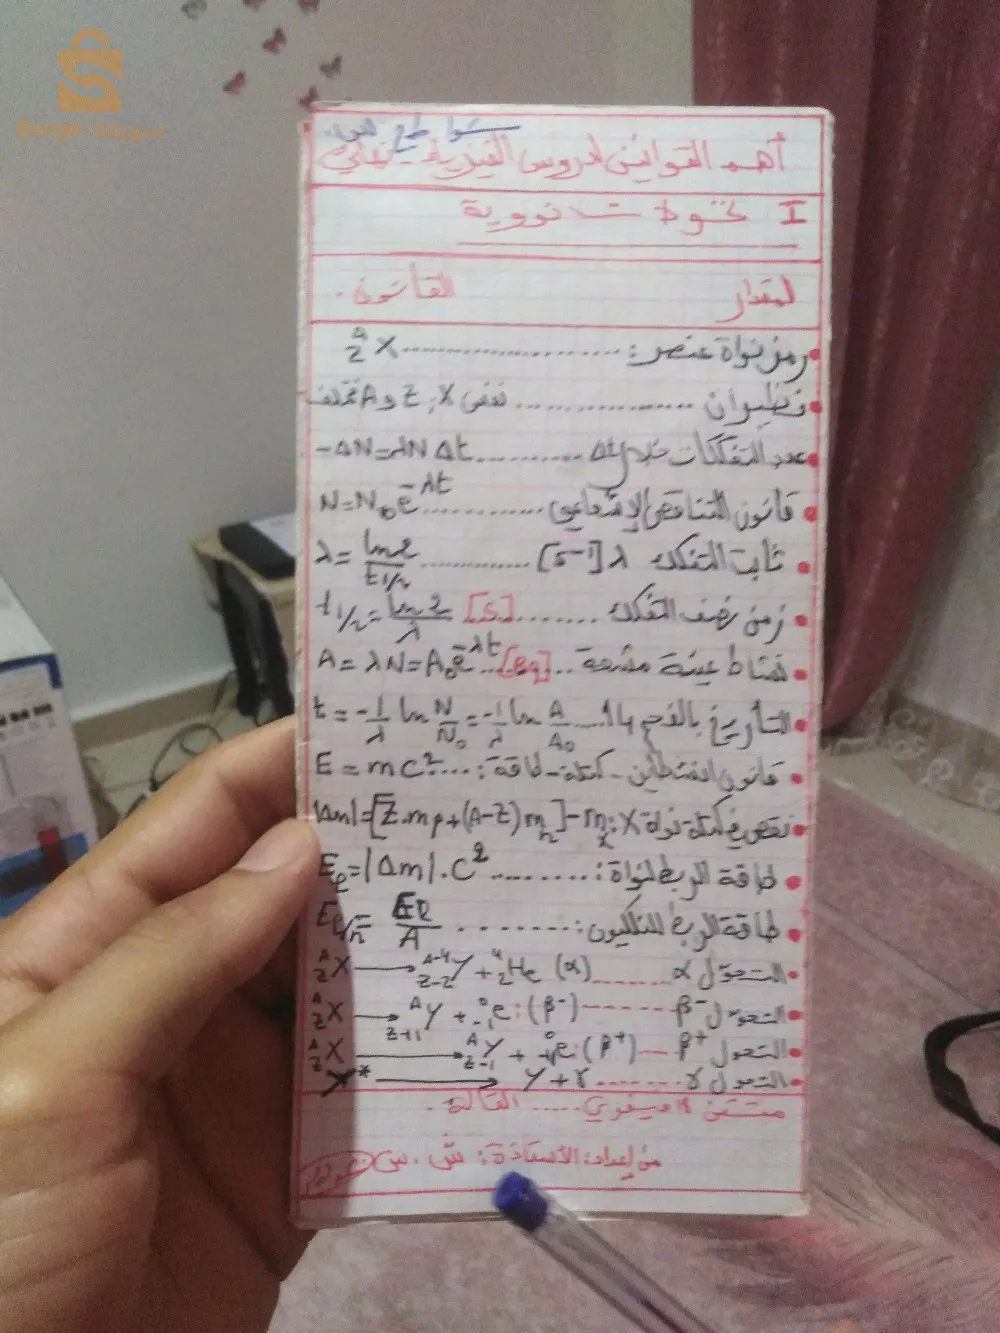 سويقة
أهم القوانين لدروس الفيزياء
I تحولات نووية
المقدار القانون
رمز نواة عنصر: ........ ᴬ_Z X
نظيران ........ نفس X, Z و A مختلف
عدد التفككات خلال Δt ........ -ΔN=λN Δt
قانون التناقص الإشعاعي ........ N=N₀e^-λt
ثابت التفكك λ [s⁻¹] ........ λ = ln2/t1/2
زمن نصف التفكك ........ [s] t1/2 = ln2/λ
نشاط عينة مشعة ... [Bq] ... A = λN = A₀e^-λt
التأريخ بالفحم 14 .... t = -1/λ ln N/N₀ = -1/λ ln A/A₀
قانون انشتاين - كتلة - طاقة: .... E = mc²
نقص في كتلة نواة X: |Δm|=[Z.mp+(A-Z)mn]-mx
طاقة الربط لنواة: ........ Eℓ=|Δm|.C²
طاقة الربط للنكليون: ........ Eℓ/n Eℓ/A
التحول α ....... (α) ᴬ_Z X → ᴬ⁻⁴_Z-2 Y + ⁴_2 He
التحول β⁻ ------ ᴬ_Z X → ᴬ_Z+1 Y + ⁰_-1 e : (β⁻)
التحول β⁺ -- ᴬ_Z X → ᴬ_Z-1 Y + ⁰_+1 e : (β⁺)
التحول γ ....... Y* → Y + γ
..... القالة.
من إعداد: الأستاذة: ش. س